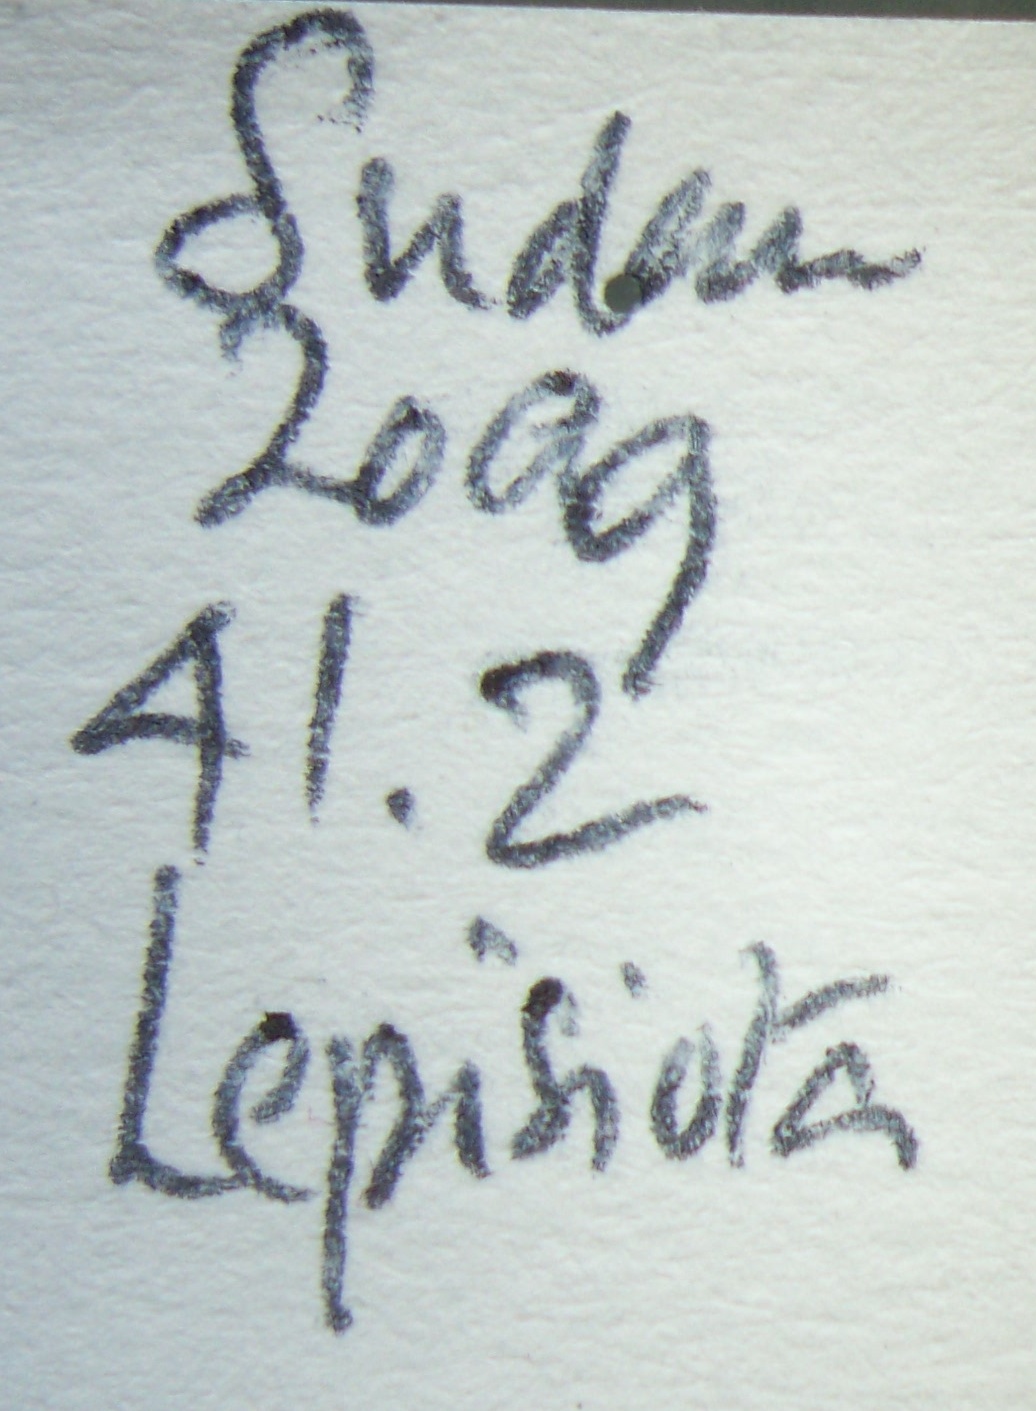 Sudan
2009
41.2
Lepisiota